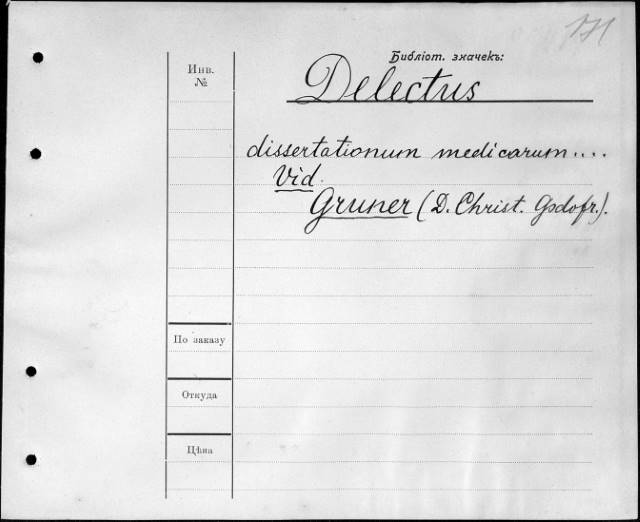 171
Библіот. значекъ:
Инв.
№
Delectus
dissertationum medicarum....
Vid.
Gruner (D. Christ. Gsdofr.).
По заказу
Откуда
Цѣна